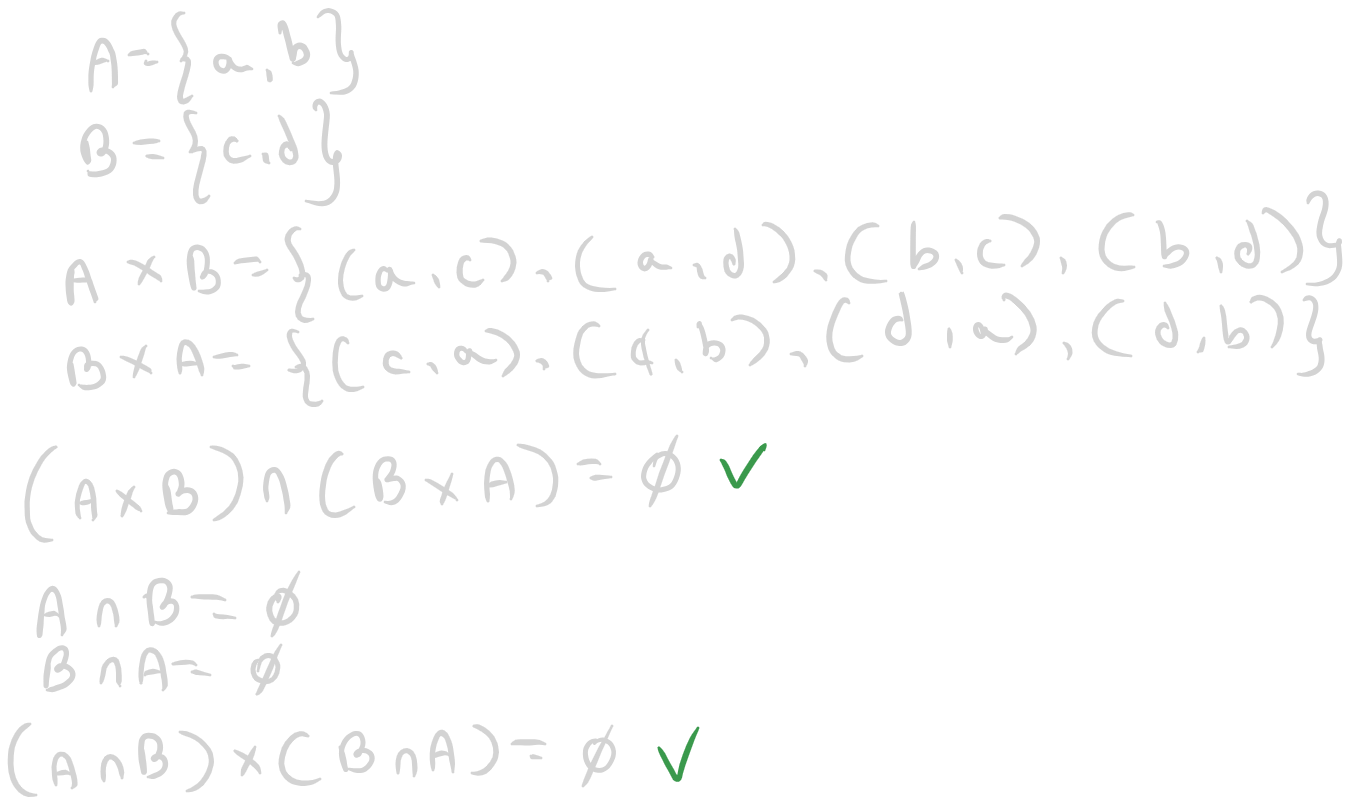 A = {a, b}
B = {c, d}
A × B = {(a, c), (a, d), (b, c), (b, d)}
B × A = {(c, a), (c, b), (d, a), (d, b)}
(A × B) ∩ (B × A) = ∅ ✓
A ∩ B = ∅
B ∩ A = ∅
(A ∩ B) × (B ∩ A) = ∅ ✓